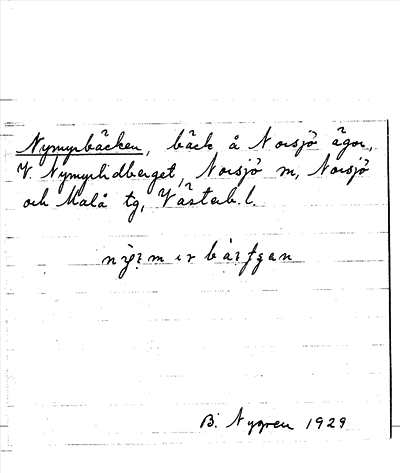 Nymyrbäcken, bäck å Norsjö ägor,
V. Nymyrlidberget, Norsjö m, Norsjö
och Malå tg, Västerb. l.
B. Nygren 1929